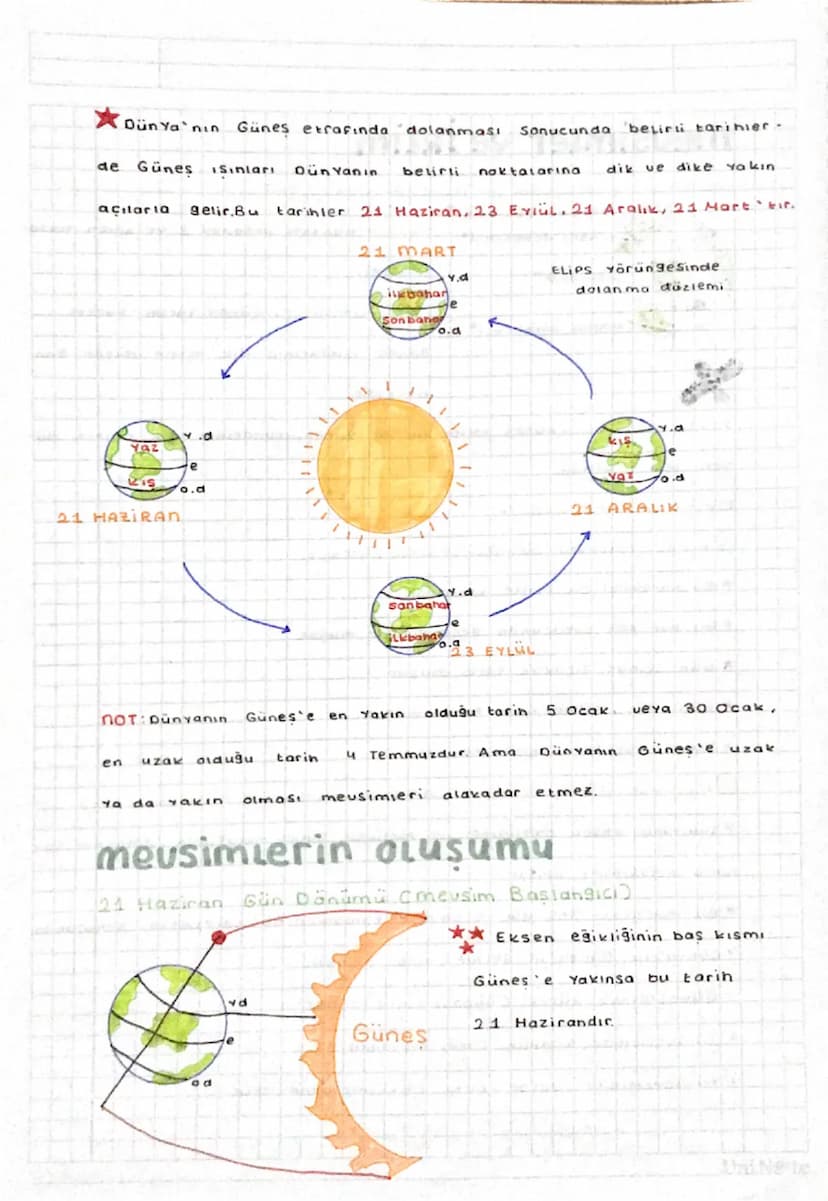 Dünya'nın Güneş etrafında dolanması sonucunda belirli tarihler-
de Güneş ışınları Dünyanın belirli noktalarına dik ve dike yakın
açılarla gelir.Bu tarihler 21 Haziran, 23 Eylül, 21 Aralık, 21 Mart'tır.
21 MART
ELİPS Yörüngesinde
dolanma düzlemi
y.d
ilkbahar
e
Sonbahar
o.d
y.d
yaz
e
kış
o.d
21 HAZİRAN
y.d
kış
e
yaz
o.d
21 ARALIK
y.d
sonbahar
e
ilkbahar
o.g
23 EYLÜL
NOT: Dünyanın Güneş'e en yakın olduğu tarih 5 Ocak veya 30 Ocak,
en uzak olduğu tarih 4 Temmuzdur. Ama Dünyanın Güneş'e uzak
ya da yakın olması mevsimleri alakadar etmez.
mevsimlerin oluşumu
21 Haziran Gün Dönümü (mevsim Başlangıcı)
Eksen eğikliğinin baş kısmı
Güneş'e yakınsa bu tarih
21 Hazirandır.
yd
e
od
Güneş